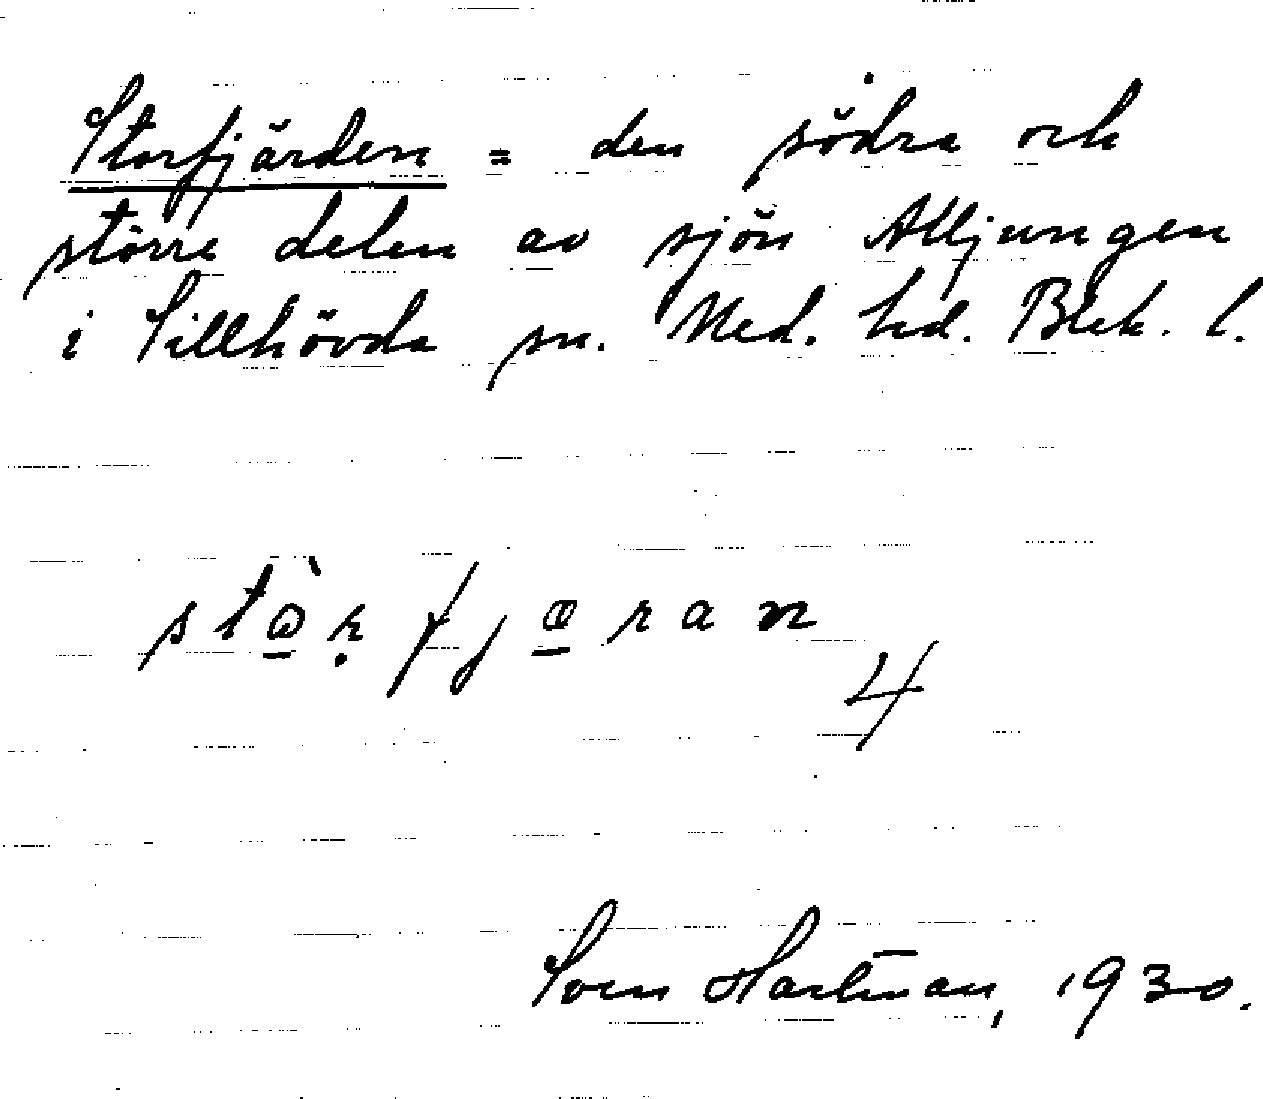 Storfjärden = den södra och
större delen av sjön Alljungen
i Sillhövda sn. Med. hd. Blek. l.
Sven Hartman, 1930.